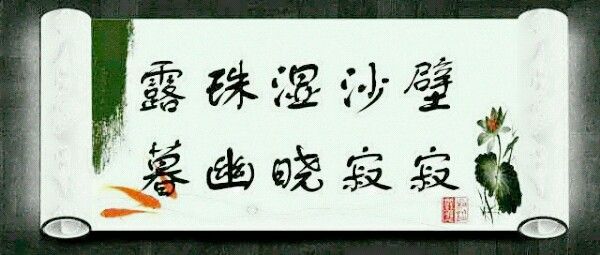 露珠湿沙壁
暮幽晓寂寂